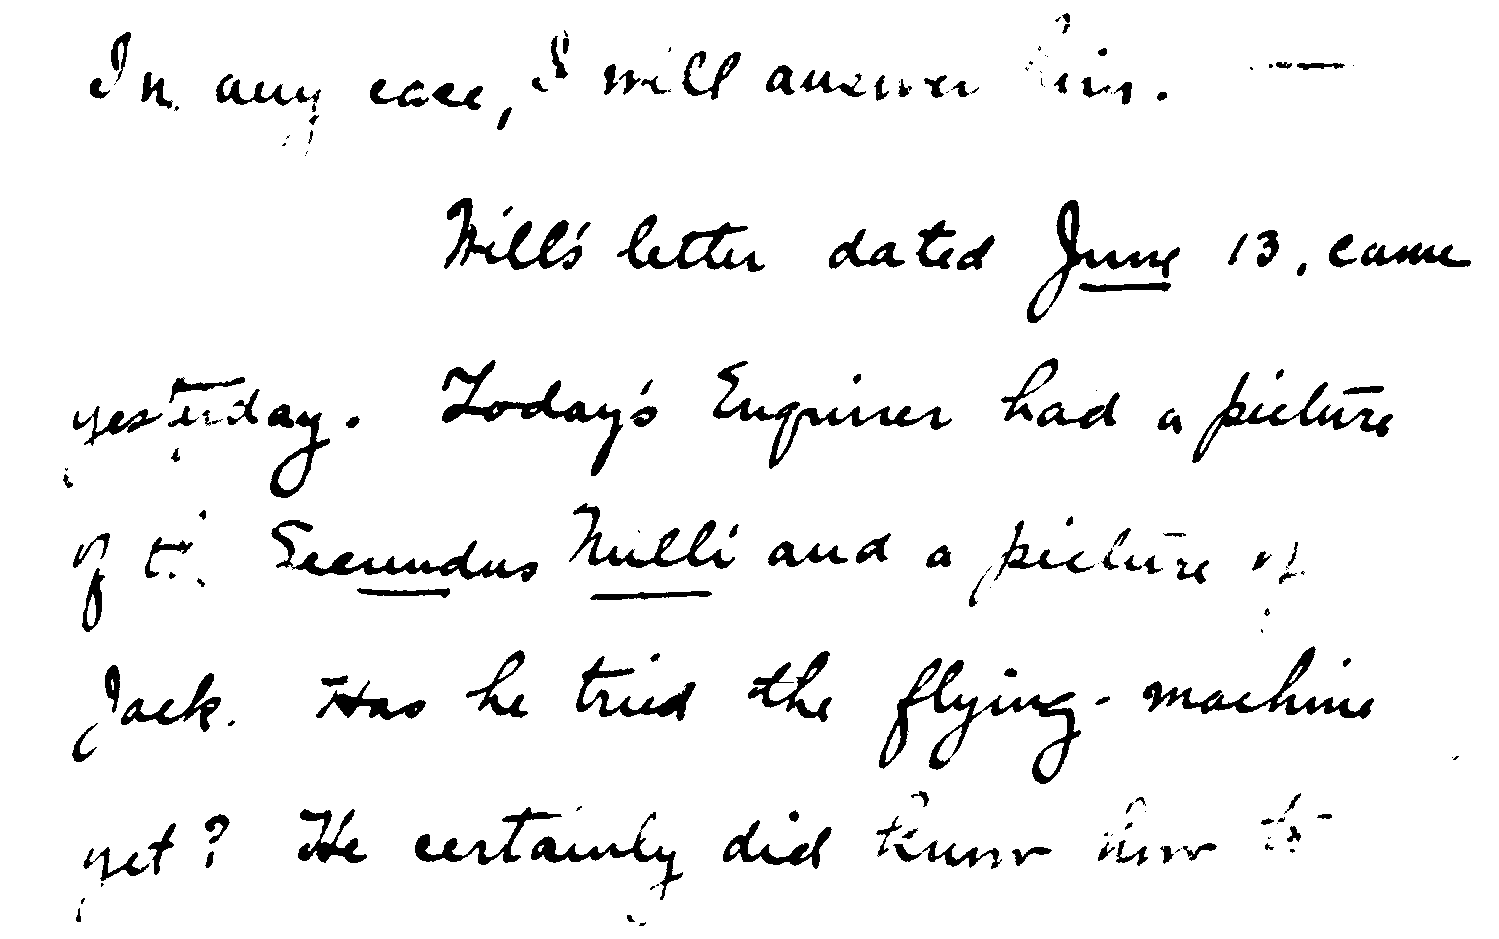 In any case, I will answer him. —
Will's letter dated June 13, came
yesterday. Today's Enquirer had a picture
of the Secundus Nulli and a picture of
Jack. Has he tried the flying-machine
yet? He certainly did know how to